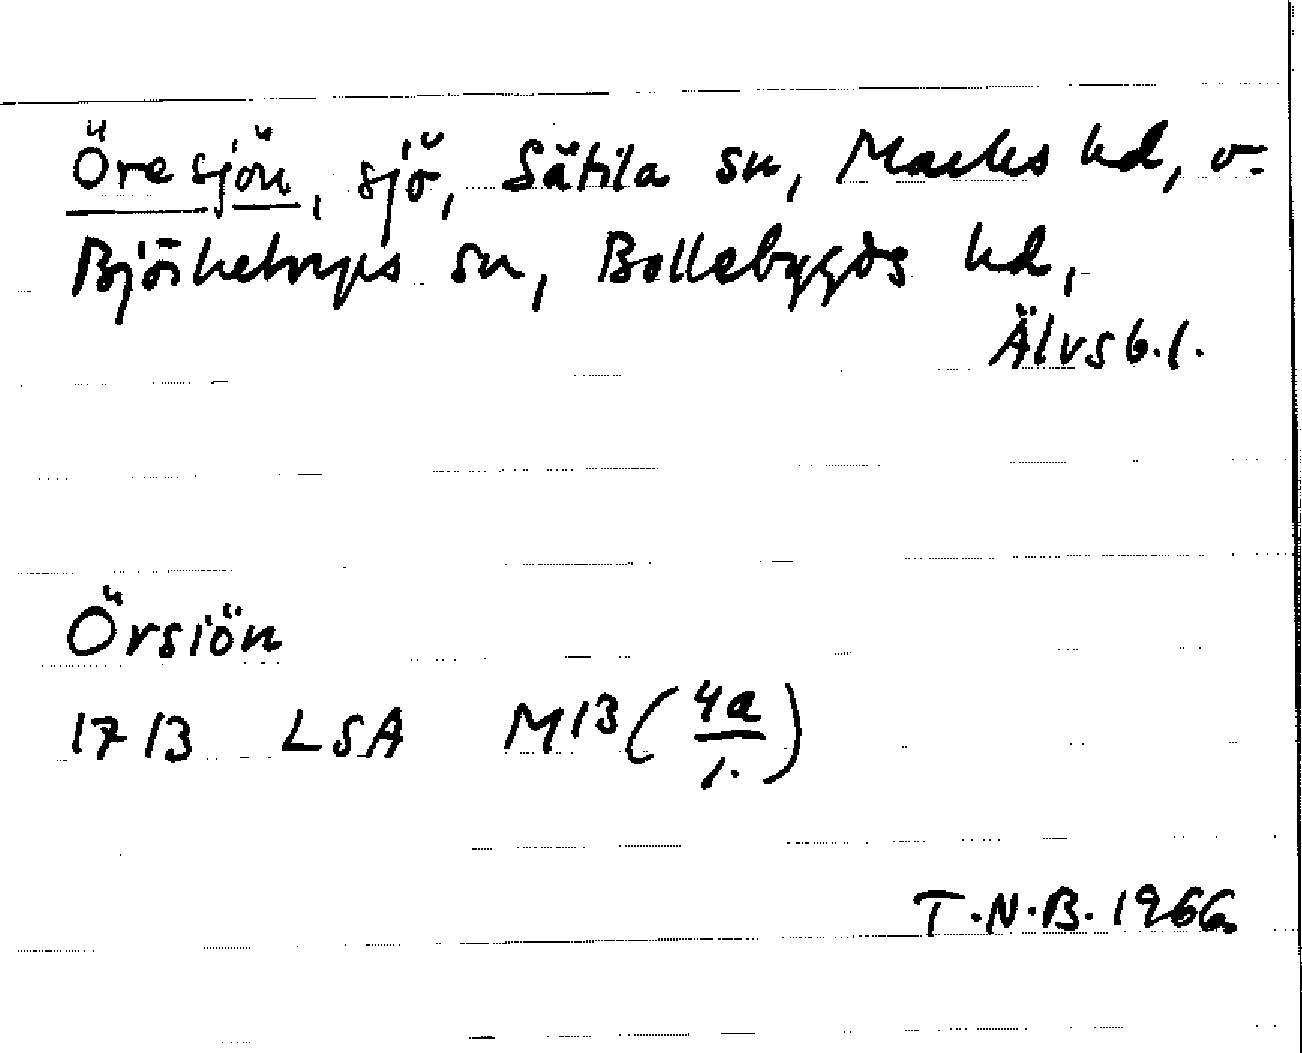 Öresjön, sjö, Sätila sn, Marks hd, o.
Björketorps sn, Bollebygds hd,
Älvsb.l.
Örsiön
1713 LSA M13 (4a/1.)
T.N.B. 1966